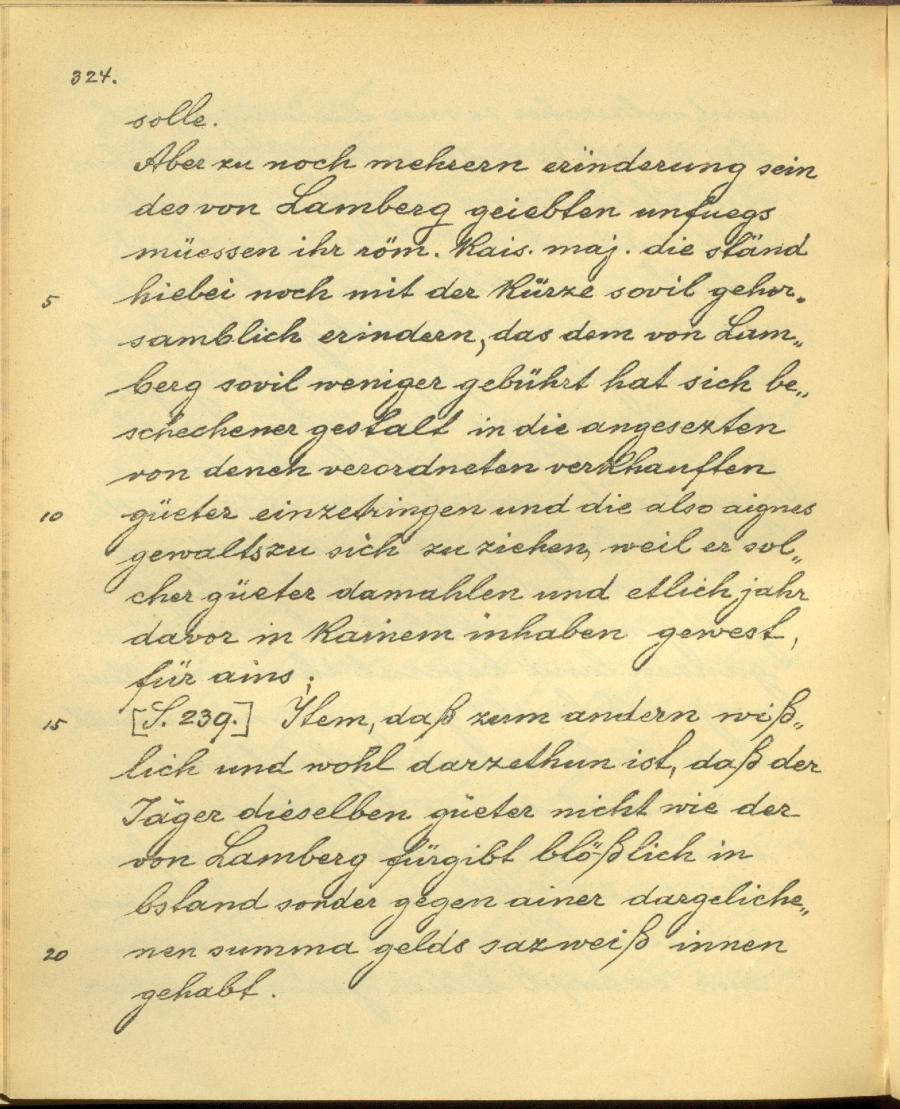 324.
solle.
Aber zu noch mehrern erinderung sein
des von Lamberg geiebten unfuegs
müessen ihr röm. Kais. maj. die ständ
5 hiebei noch mit der Kürze sovil gehor„
samblich erindern, das dem von Lam„
berg sovil weniger gebührt hat sich be„
schechener gestalt in die angesezten
von denen verordneten verkhauften
10 güeter einzetringen und die also aignes
gewalts zu sich zu ziehen, weil er sol„
cher güeter damahlen und etlich jahr
davor in Kainem inhaben gewest,
für ains;
15 [S. 239.] Item, daß zum andern wiß„
lich und wohl darzethun ist, daß der
Jäger dieselben güeter nicht wie der
von Lamberg fürgibt blößlich in
bstand sonder gegen ainer dargeliche„
20 nen summa gelds sazweiß innen
gehabt.